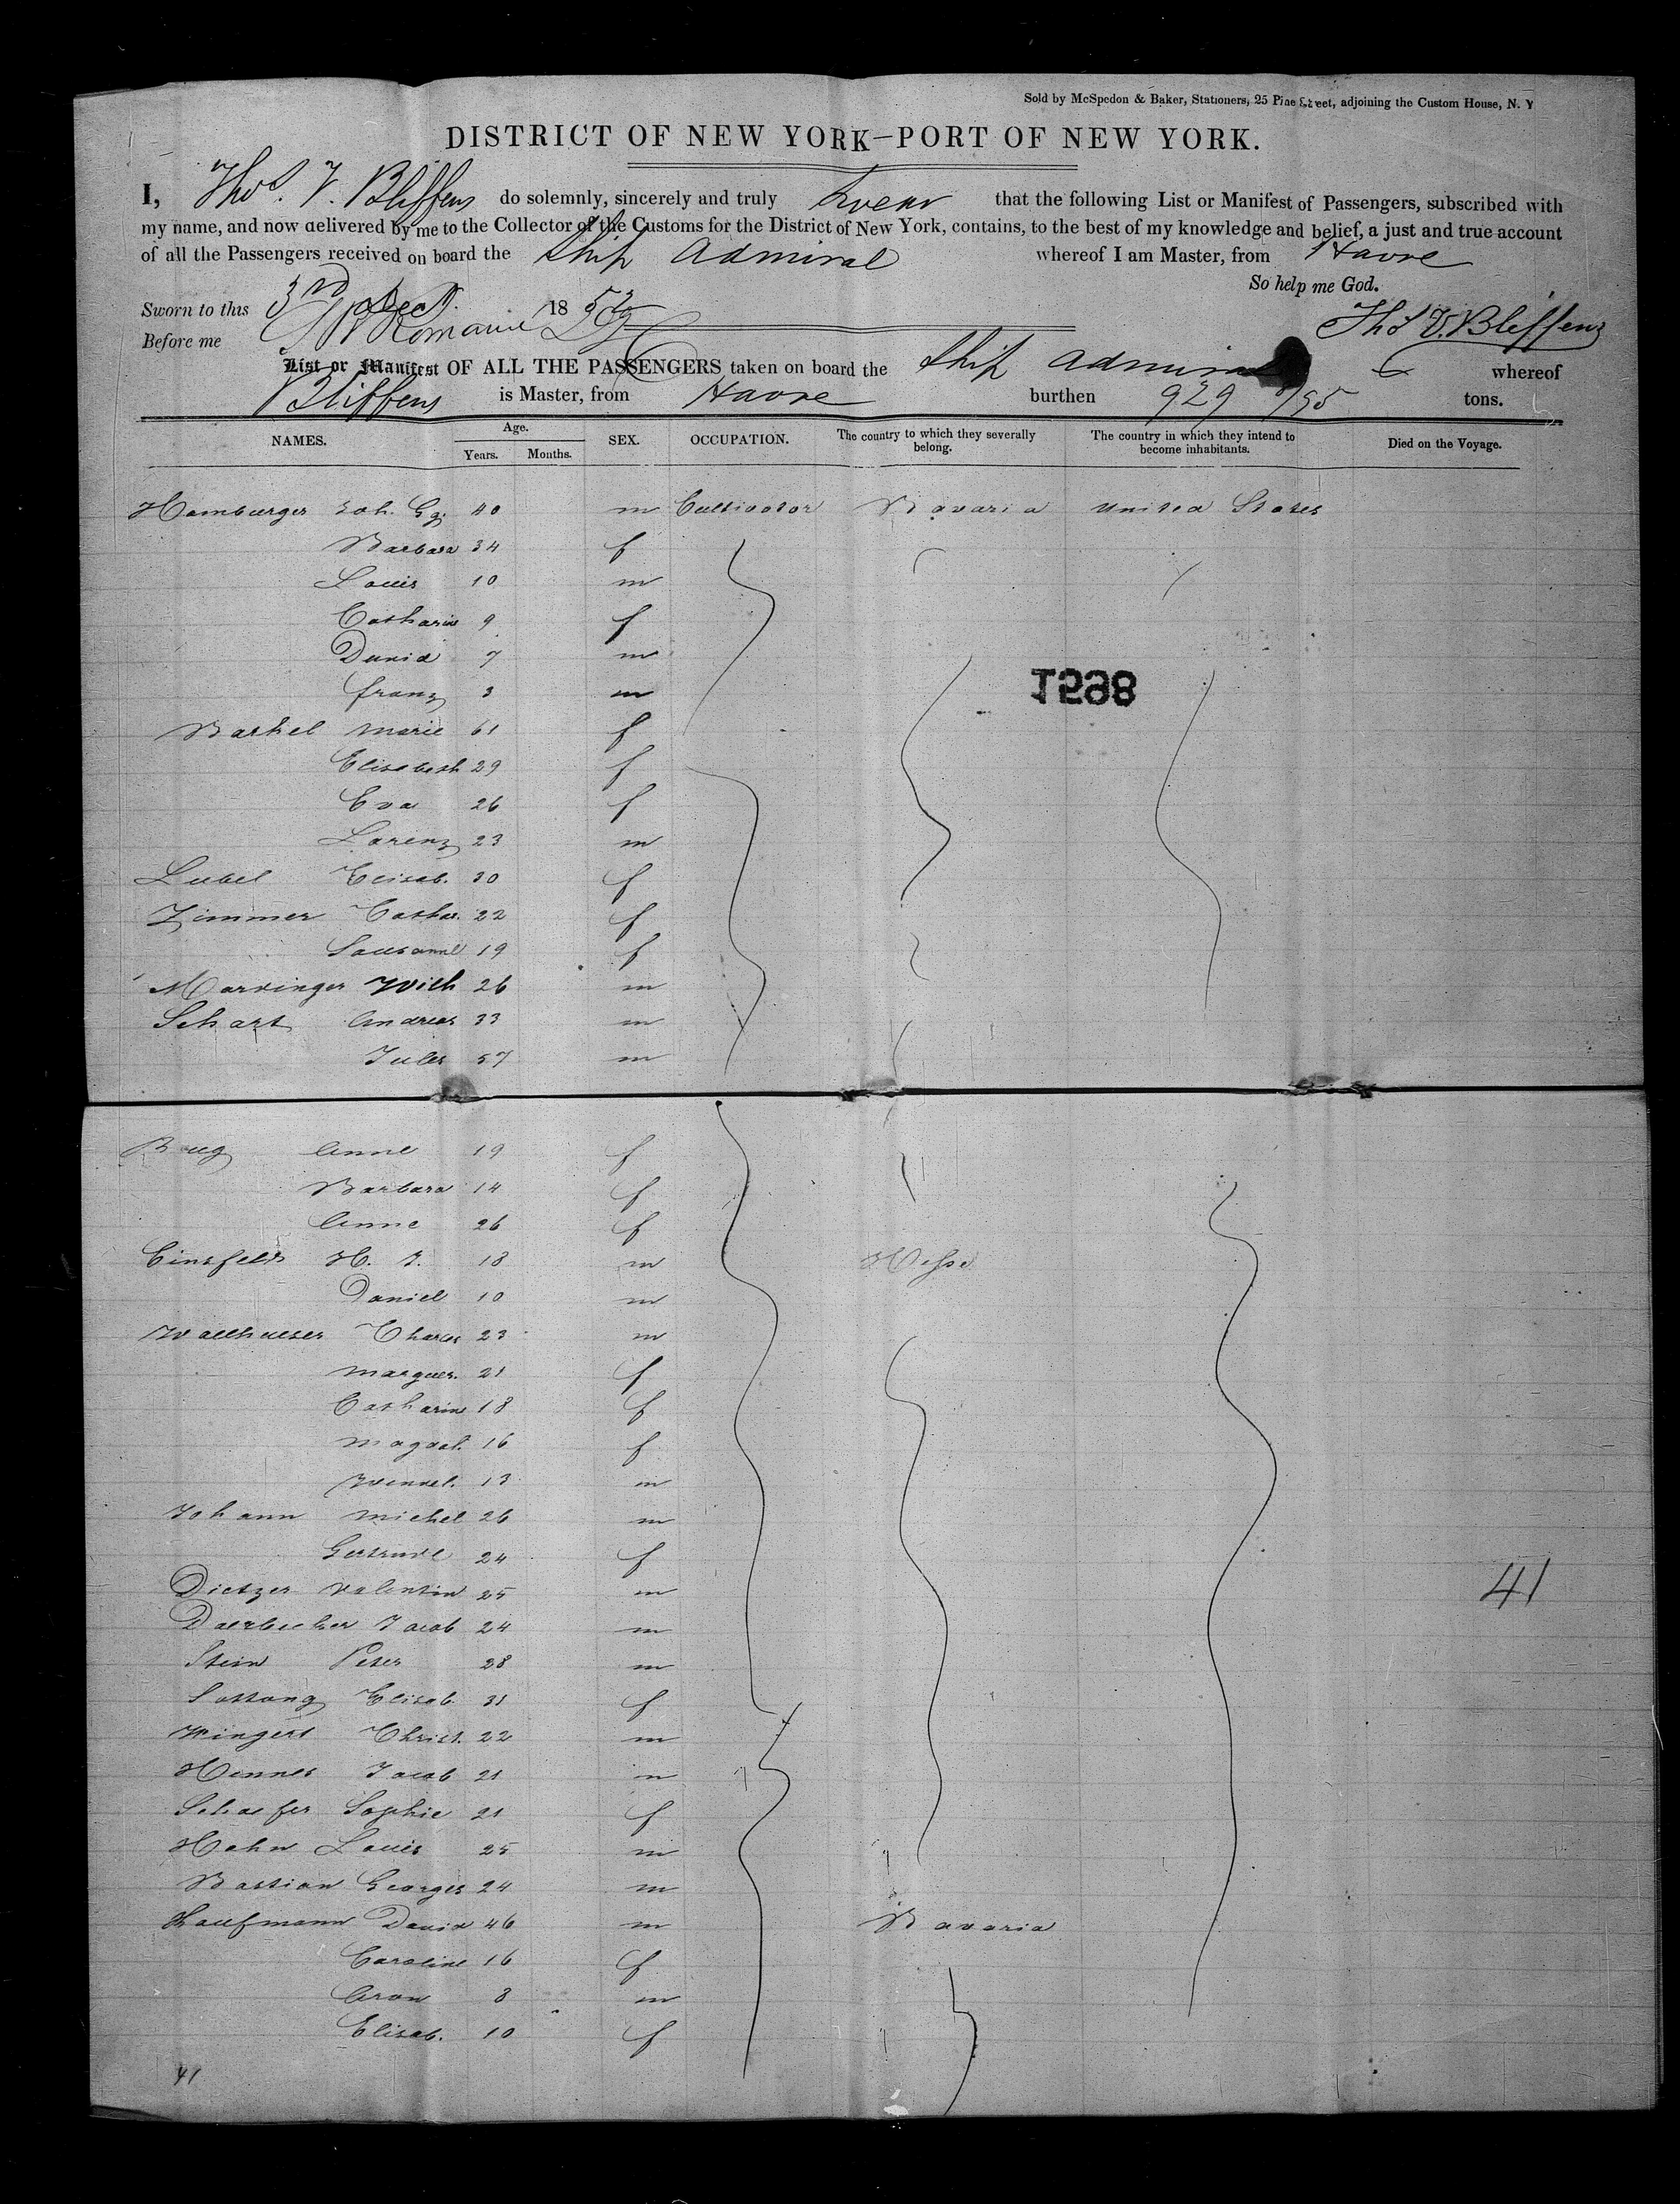 Sold by McSpedon & Baker, Stationers, 25 Pine Street, adjoining the Custom House, N. Y
DISTRICT OF NEW YORK—PORT OF NEW YORK.
I, Thos. V. Bliffens do solemnly, sincerely and truly Swear that the following List or Manifest of Passengers, subscribed with
my name, and now delivered by me to the Collector of the Customs for the District of New York, contains, to the best of my knowledge and belief, a just and true account
of all the Passengers received on board the Ship Admiral whereof I am Master, from Havre
So help me God.
Sworn to this 3rd Dec 1852
Thos V. Bliffens
Before me
List or Manifest OF ALL THE PASSENGERS taken on board the Ship Admiral whereof
Bliffens is Master, from Havre burthen 929 /95 tons.
NAMES. Age. SEX. OCCUPATION. The country to which they severally belong. The country in which they intend to become inhabitants. Died on the Voyage.
Years. Months.
Hamburger Joh. Gg. 40 m Cultivator Bavaria United States
Barbara 34 f
Louis 10 m
Catharine 9 f
David 7 m
Franz 3 m
1598
Barthel Marie 61 f
Elisabeth 29 f
Eva 26 f
Lorenz 23 m
Lubel Elisab. 30 f
Zimmer Cathar. 22 f
Sousanne 19 f
Marvinger Wilh 26 m
Schart Andreas 33 m
Jules 57 m
Bug Anne 19 f
Barbara 14 f
Anne 26 f
Einsfeld H. J. 18 m Hesse
Daniel 10 m
Wallhauser Charles 23 m
Marguer. 21 f
Catharine 18 f
Magdal. 16 f
Wendel. 13 m
Johann Michel 26 m
Gertrude 24 f
Dietzer Valentin 25 m
41
Jacob 24 m
Stein Peter 28 m
Sottong Elisab. 31 f
Wingert Christ. 22 m
Hennes Jacob 21 m
Schaefer Sophie 21 f
Hahn Louis 25 m
Bastian Georges 24 m
Kaufmann David 46 m Bavaria
Caroline 16 f
Aron 8 m
Elisab. 10 f
41